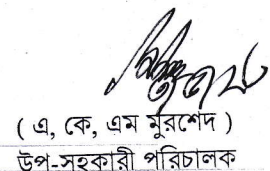 ( এ, কে, এম মুরশেদ )
উপ-সহকারী পরিচালক